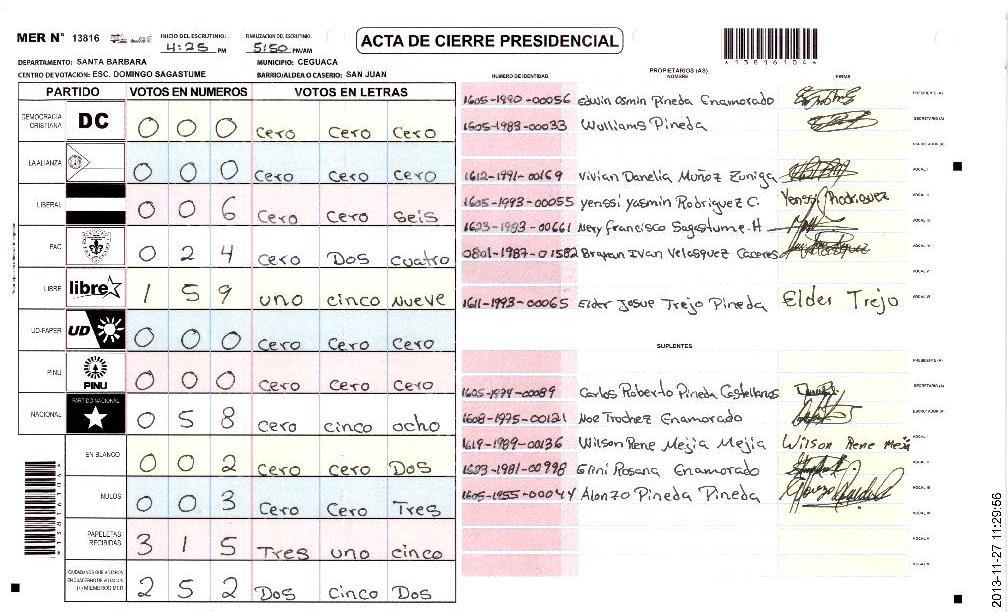 MER N° 13816 INICIO DEL ESCRUTINIO: 4:25 PM FINALIZACION DEL ESCRUTINIO: 5:50 PM/AM
ACTA DE CIERRE PRESIDENCIAL
DEPARTAMENTO: SANTA BARBARA MUNICIPIO: CEGUACA
CENTRO DE VOTACION: ESC. DOMINGO SAGASTUME BARRIO/ALDEA O CASERIO: SAN JUAN
PARTIDO VOTOS EN NUMEROS VOTOS EN LETRAS
DEMOCRACIA CRISTIANA DC 0 0 0 Cero Cero Cero
LA ALIANZA 0 0 0 Cero Cero Cero
LIBERAL 0 0 6 Cero Cero Seis
PAC 0 2 4 Cero Dos cuatro
LIBRE libre 1 5 9 uno cinco Nueve
UD-FAPER UD 0 0 0 Cero Cero Cero
PINU PINU 0 0 0 Cero Cero Cero
NACIONAL PARTIDO NACIONAL 0 5 8 Cero cinco ocho
EN BLANCO 0 0 2 Cero Cero Dos
NULOS 0 0 3 Cero Cero Tres
PAPELETAS RECIBIDAS 3 1 5 Tres uno cinco
CIUDADANOS QUE VOTARON EN CUADERNO DE VOTACION (+) MIEMBROS MER 2 5 2 Dos Cinco Dos
NUMERO DE IDENTIDAD PROPIETARIOS (AS) NOMBRE FIRMA
1605-1990-00056 Edwin Osmin Pineda Enamorado PRESIDENTE (A)
1605-1983-00033 Wulliams Pineda SECRETARIO (A)
ESCRUTADOR (A)
1612-1991-00169 Vivian Danelia Muñoz Zuniga VOCAL I
1605-1993-00055 yenssi yasmin Rodriguez C. Yenssi Rodriguez VOCAL II
1623-1983-00661 Nery francisco Sagastume H VOCAL III
0801-1987-01582 Brayan Ivan Velasquez Caceres VOCAL IV
VOCAL V
1611-1993-00065 Elder Josue Trejo Pineda Elder Trejo VOCAL VI
SUPLENTES
PRESIDENTE (A)
1605-1974-00089 Carlos Roberto Pineda Castellanos SECRETARIO (A)
1608-1975-00121 Noe Trochez Enamorado ESCRUTADOR (A)
1619-1989-00136 Wilson Rene Mejia Mejia Wilson Rene Mejia VOCAL I
1623-1981-00998 Elini Rosana Enamorado VOCAL II
1605-1955-00044 Alonzo Pineda Pineda VOCAL III
VOCAL IV
VOCAL V
VOCAL VI
2013-11-27 11:29:56